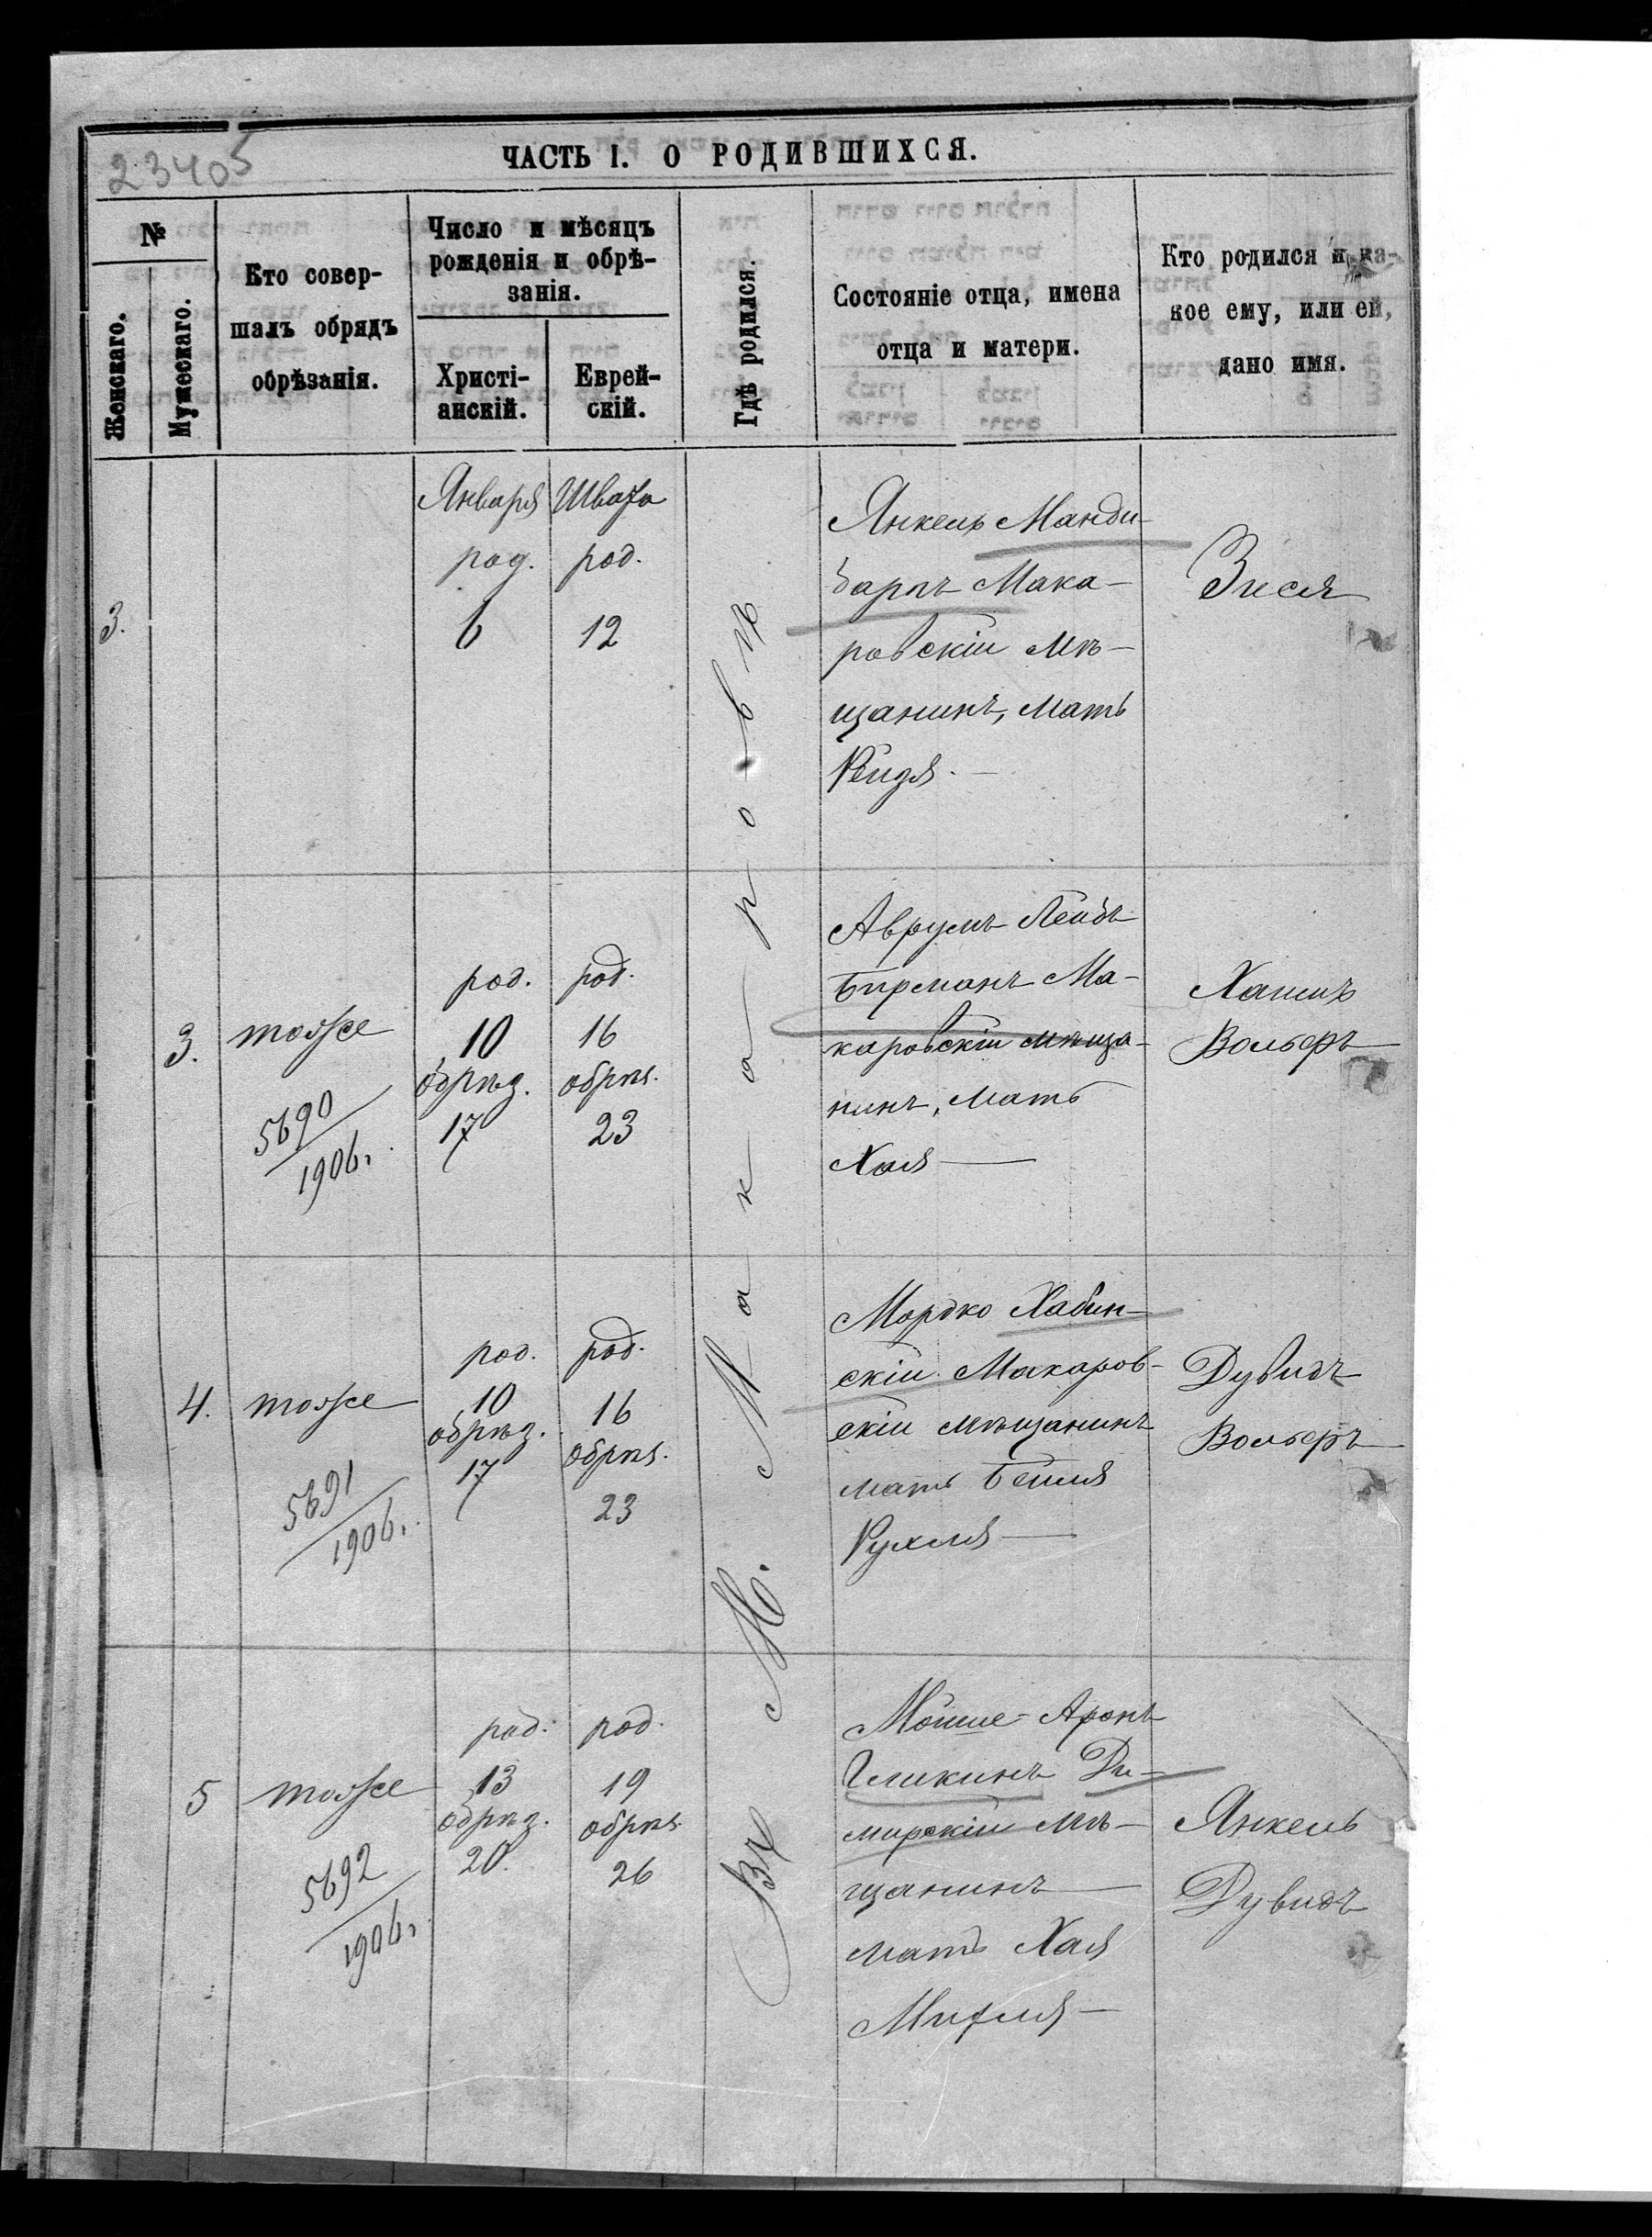 23405
ЧАСТЬ I. О РОДИВШИХСЯ.
№
Женскаго.
Мужескаго.
Кто совер-
шалъ обрядъ
обрѣзанія.
Число и мѣсяцъ
рожденія и обрѣ-
занія.
Христі-
анскій.
Еврей-
скій.
Гдѣ родился.
Состояніе отца, имена
отца и матери.
Кто родился и ка-
кое ему, или ей,
дано имя.
Въ М. Макаровѣ
3.
Января
род.
6
Швата
род.
12
Янкель Манди-
баръ Мака-
ровскій мѣ-
щанинъ, мать
Рейзя. —
Зися
3.
тотже
5690
1906.
род.
10
обрѣз.
17
род.
16
обрѣз.
23
Аврумъ Лейбъ
Бирманъ Ма-
каровскій мѣща-
нинъ, мать
Хая —
Хаимъ
Вольфъ
4.
тотже
5691
1906.
род.
10
обрѣз.
17
род.
16
обрѣз.
23
Мордко Хабин-
скій Макаров-
скій мѣщанинъ
мать Бейля
Рухля —
Дувидъ
Вольфъ
5
тотже
5692
1906.
род.
13
обрѣз.
20.
род.
19
обрѣз.
26
Мойше-Аронъ
Гликинъ Ди-
мирскій мѣ-
щанинъ —
мать Хая
Янкель
Дувидъ